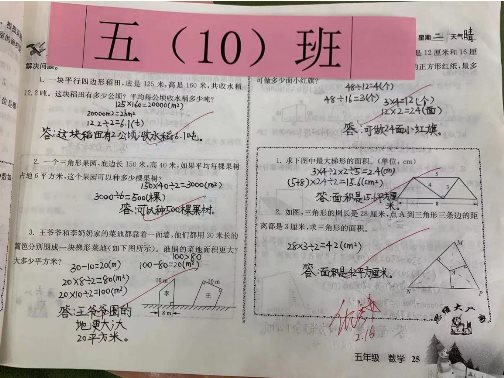 五（10）班
星期二 天气晴
解决问题。
1. 一块平行四边形稻田，底是125米，高是160米，共收水稻
12.2吨。这块稻田有多少公顷？平均每公顷收水稻多少吨？
125×160=20000(m²)
20000m²=2hm²
12.2÷2=6.1(t)
答：这块稻田有2公顷，收水稻6.1吨。
2. 一个三角形果园，底边长150米，高40米，如果平均每棵果树
占地6平方米，这个果园可以种多少棵果树？
150×40÷2=3000(m²)
3000÷6=500(棵)
答：可以种500棵果树。
3. 王爷爷和李奶奶家的菜地都靠着一面墙，他们都用30米长的
篱笆分别围成一块梯形菜地(如下图所示)。谁围的菜地面积更大？
大多少平方米？
100>80
30-10=20(m) 100-80=20(m²)
20×8÷2=80(m²)
20×10÷2=100(m²)
答：王爷爷围的
地更大，大
20平方米。
10m
8m
李
王
是12厘米和16厘
的正方形红纸，最多
可做多少面小红旗？
48÷12=4(个)
48÷16=3(个) 3×4=12(个)
12×2=24(面)
答：可做24面小红旗。
1. 求下图中最大梯形的面积。(单位：cm)
3×4÷2×2÷5=2.4(cm)
(5+8)×2.4÷2=15.6(cm²)
2. 如图，三角形的周长是28厘米，点A到三角形三条边的距
离都是3厘米，求三角形的面积。
28×3÷2=42(cm²)
答：面积是42平方厘米。
优
2.18
五年级 数学 25